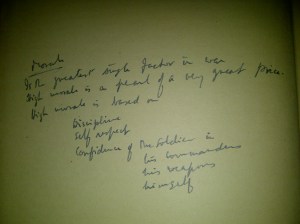 Morale
Is the greatest single factor in war
High morale is a pearl of a very great price.
High morale is based on
Discipline
Self respect
Confidence of the soldier in
his commanders
his weapons
himself